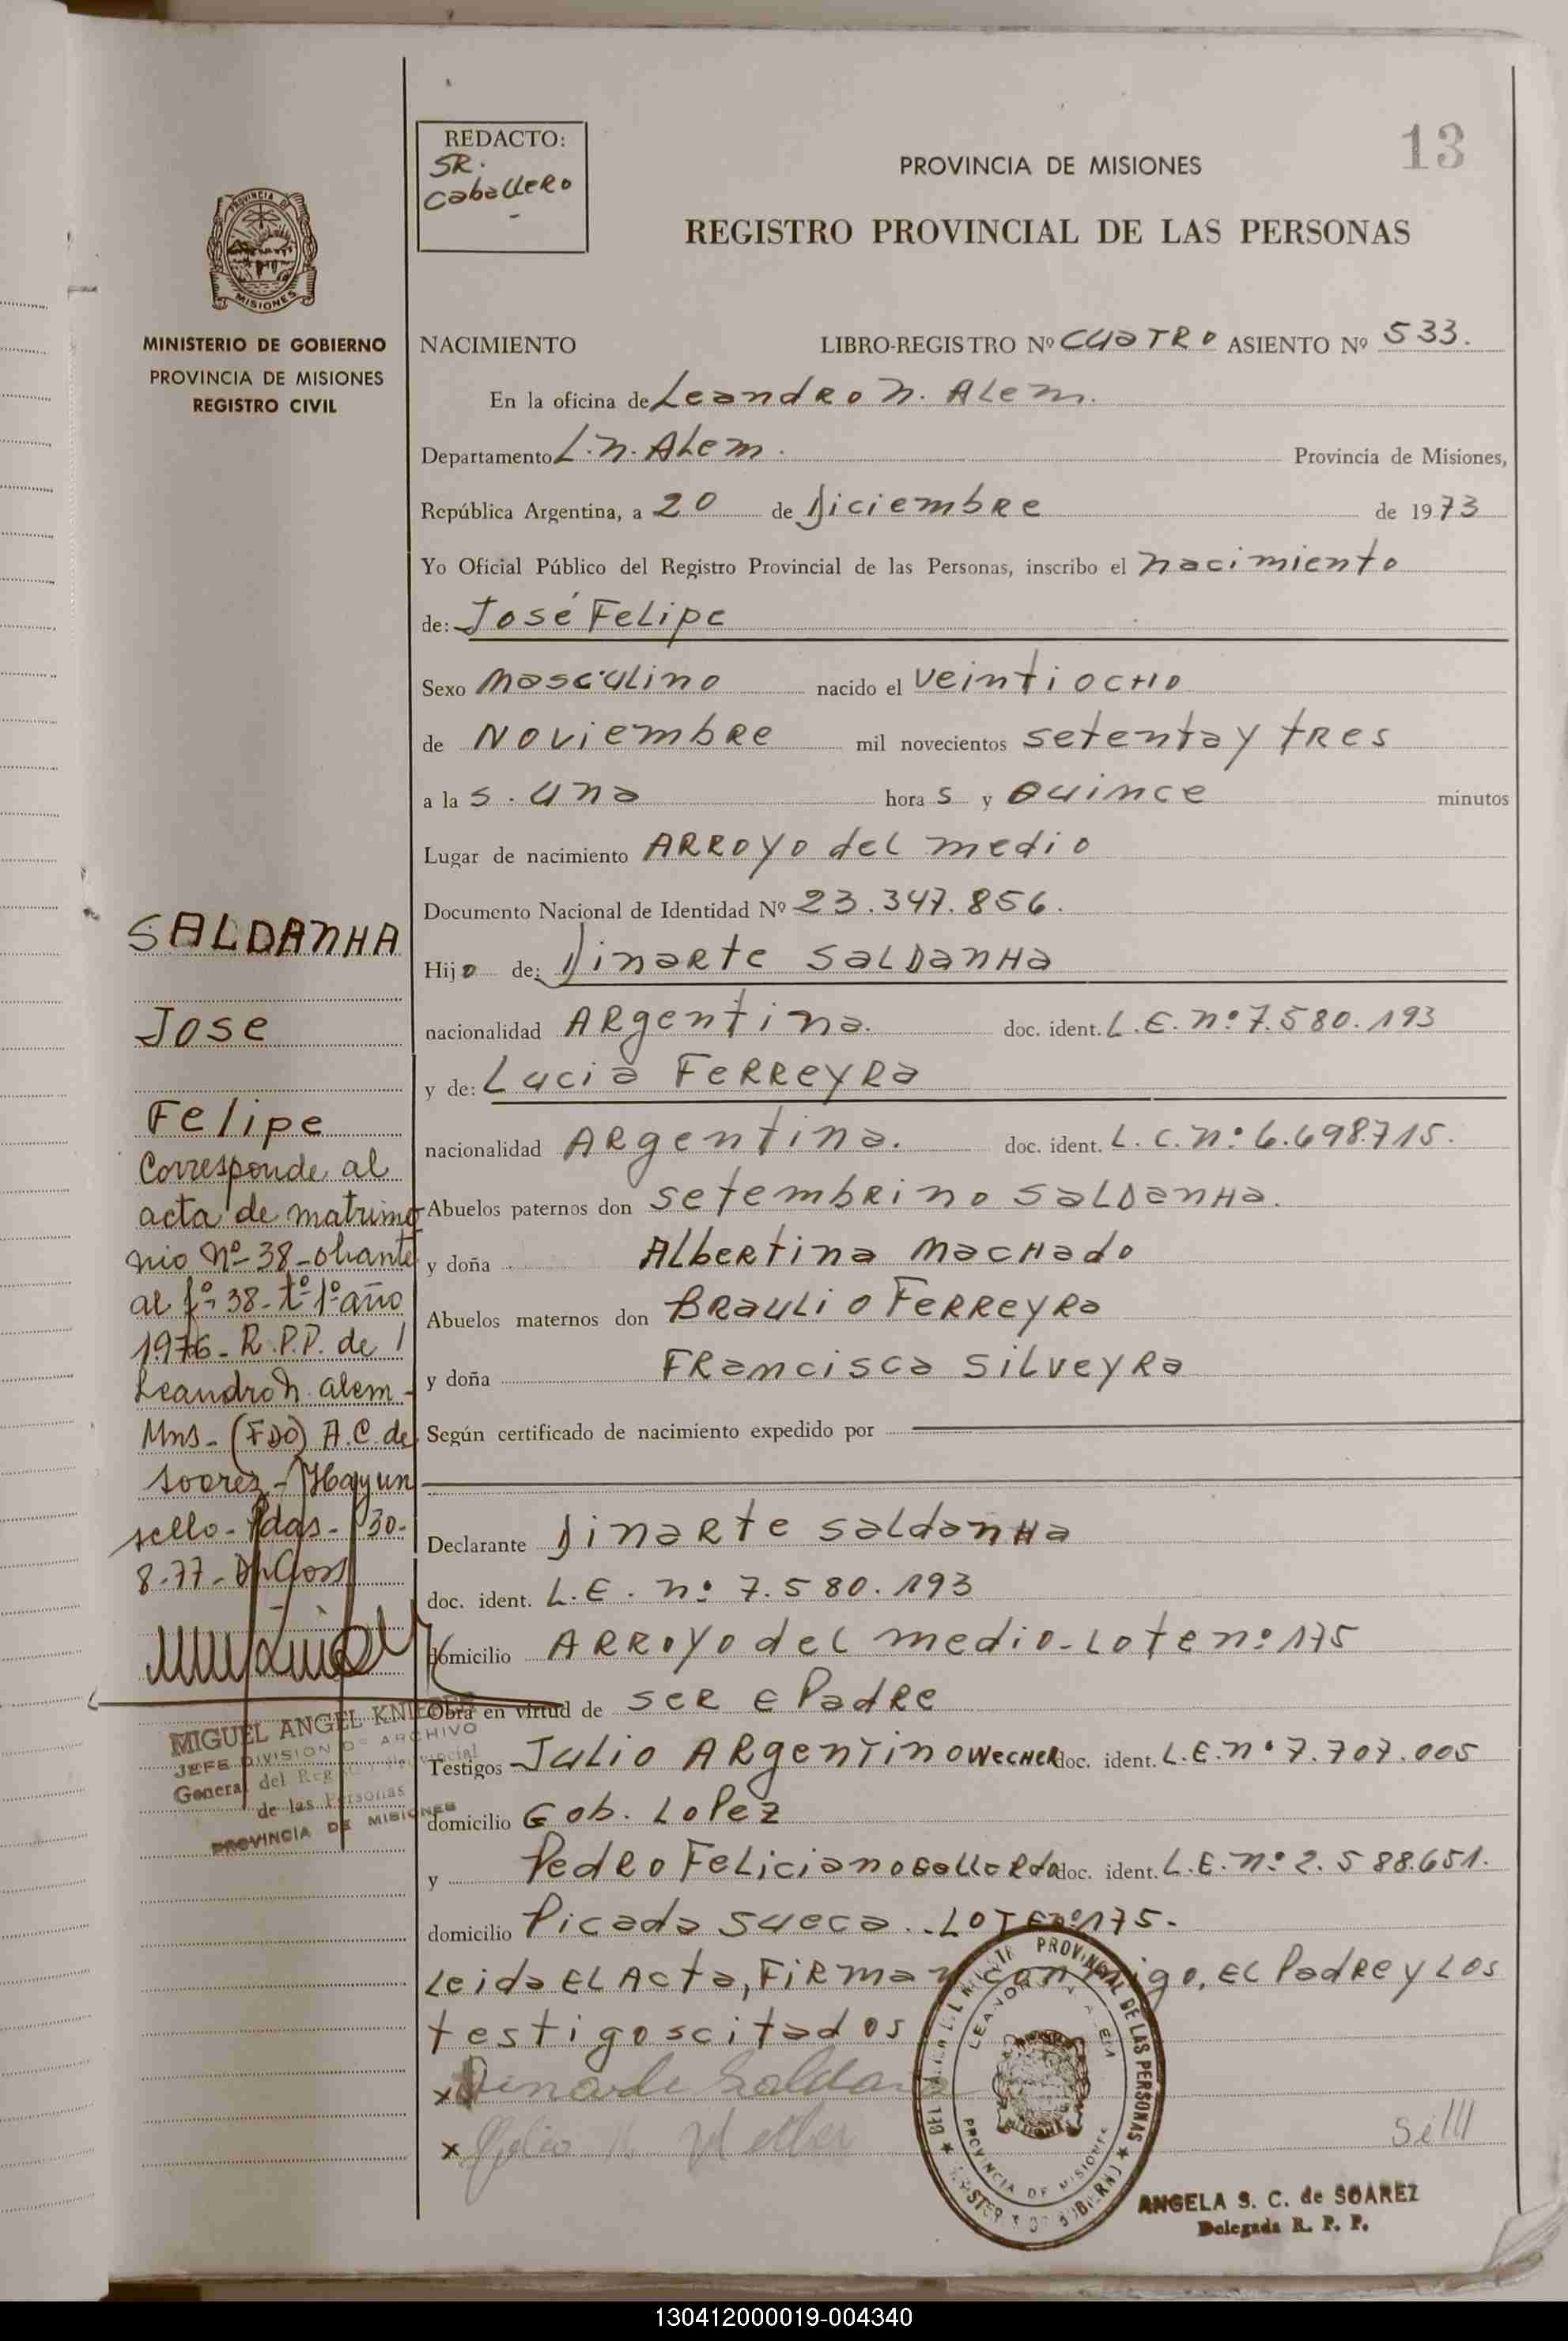 13
REDACTO:
SR.
Caballero
PROVINCIA DE MISIONES
REGISTRO PROVINCIAL DE LAS PERSONAS
PROVINCIA DE
MISIONES
MINISTERIO DE GOBIERNO
PROVINCIA DE MISIONES
REGISTRO CIVIL
NACIMIENTO LIBRO-REGISTRO Nº CUATRO ASIENTO Nº 533.
En la oficina de Leandro N. Alem.
Departamento L.N. Alem. Provincia de Misiones,
República Argentina, a 20 de Diciembre de 1973
Yo Oficial Público del Registro Provincial de las Personas, inscribo el nacimiento
de: José Felipe
Sexo Masculino nacido el veintiocho
de Noviembre mil novecientos setenta y tres
a la s. una hora s y Quince minutos
Lugar de nacimiento Arroyo del medio
Documento Nacional de Identidad Nº 23.347.856.
Hijo de: Dinarte Saldanha
nacionalidad Argentina. doc. ident. L.E. nº 7.580.193
y de: Lucia Ferreyra
nacionalidad Argentina. doc. ident. L.C. nº 6.698.715.
Abuelos paternos don Setembrino Saldanha.
y doña Albertina Machado
Abuelos maternos don Braulio Ferreyra
y doña Francisca Silveyra
Según certificado de nacimiento expedido por
Declarante Dinarte Saldanha
doc. ident. L.E. nº 7.580.193
domicilio Arroyo del medio - Lote nº 175
Obra en virtud de ser e Padre
Testigos Julio Argentino Wecner doc. ident. L.E. nº 7.707.005
domicilio Gob. Lopez
y Pedro Feliciano Gallardo doc. ident. L.E. nº 2.588.651.
domicilio Picada Sueca.. Lote nº 175.
Leida el Acta, Firman conmigo, el Padre y los
testigos citados
x Dinarte Saldanha
x Julio A
SALDANHA
Jose
Felipe
Corresponde al
acta de matrimo
nio Nº 38 - obrante
al fº 38 - tº 1º año
1976 - R.P.P. de
Leandro N. Alem -
Mns - (FDO) A.C. de
Soarez - Hay un
sello - Pdas - 30-
8-77 -
MIGUEL ANGEL
JEFE DIVISION DE ARCHIVO
General del Reg. Provincial
de las Personas
PROVINCIA DE MISIONES
PROVINCIAL DE LAS PERSONAS
PROVINCIA DE MISIONES
ANGELA S. C. de SOAREZ
Delegada R. P. P.
130412000019-004340